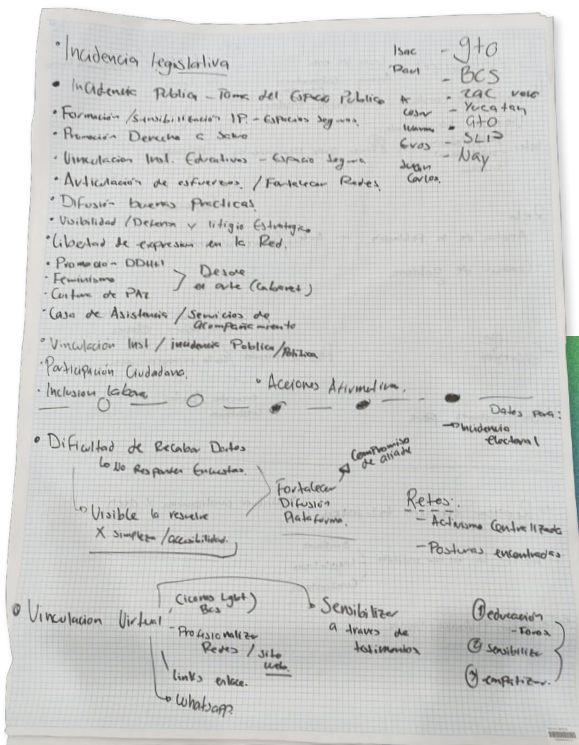 • Incidencia Legislativa
• Incidencia Publica - Toma del Espacio Publico
• Formación /sensibilización IP. - Espacios Seguros.
• Promoción Derecho a
• Vinculacion Inst. Educativas - Espacio Seguro
• Articulación de esfuerzos. / Fortalecer Redes.
• Difusión buenas Practicas.
• Visibilidad / Defensa y litigio Estrategico
• Libertad de expresion en la Red.
• Promoción DDHH
• Feminismo
• Cultura de PAZ
Desde
el arte (Cabaret)
• Casa de Asistencia / Servicios de
acompañamiento
• Vinculacion Inst / incidencia Publica/Politica
• Participación Ciudadana.
• Inclusion Laboral
• Acciones Afirmativa.
Isac - gto
Paul - BCS
- zac
Cesar - Yucatan
- Gto
Eros - SLP
Juan Carlos - Nay
Datos para:
→ Incidencia
electoral
• Dificultad de Recabar Datos
↳ No Responden Encuestas.
↳ Visible lo resuelve
X simpleza /accesibilidad.
Fortalecer
Difusión
Plataforma.
Compromiso
de aliade
Retos:
- Activismo Centralizado
- Posturas encontradas
• Vinculacion Virtual
(iconos Lgbt)
BCS
- Profesionalizar
Redes / sitio
web.
links enlace.
↳ Whatsapp
Sensibilizar
a traves de
testimonios
① educación
- Foros
② sensibilizar
③ empatizar.